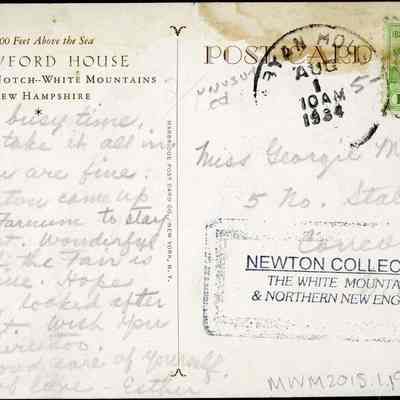 00 Feet Above the Sea
WFORD HOUSE
NOTCH--WHITE MOUNTAINS
EW HAMPSHIRE
busy time,
take it all in
u are fine.
came up
Farnum to stay
t. Wonderful
the Fair is
Hope
looked after
t. Wish you
were too.
ood care of yourself.
love - Esther
HARBRIDGE POST CARD CO., NEW YORK, N. Y.
POST CARD
AUG
1
10AM
1934
5-
UNUSU
CD
Miss Georgie M
5 No. Stat
NEWTON COLLEC
THE WHITE MOUNTA
& NORTHERN NEW ENG
MWM2015.1.